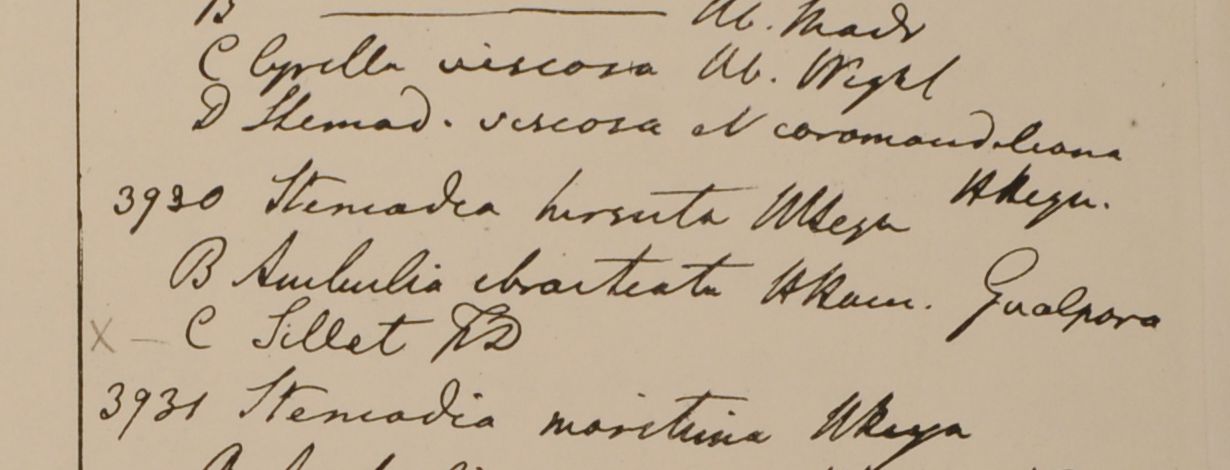 B ——— Hb. Madr
C Cyrilla viscosa Hb. Wight
D Stemod. viscosa et coromandeliana
HHeyn.
3930 Stemodia hirsuta
B Ambulia ebracteata HHam. Gualpara
C Sillet FD
3931 Stemodia maritima